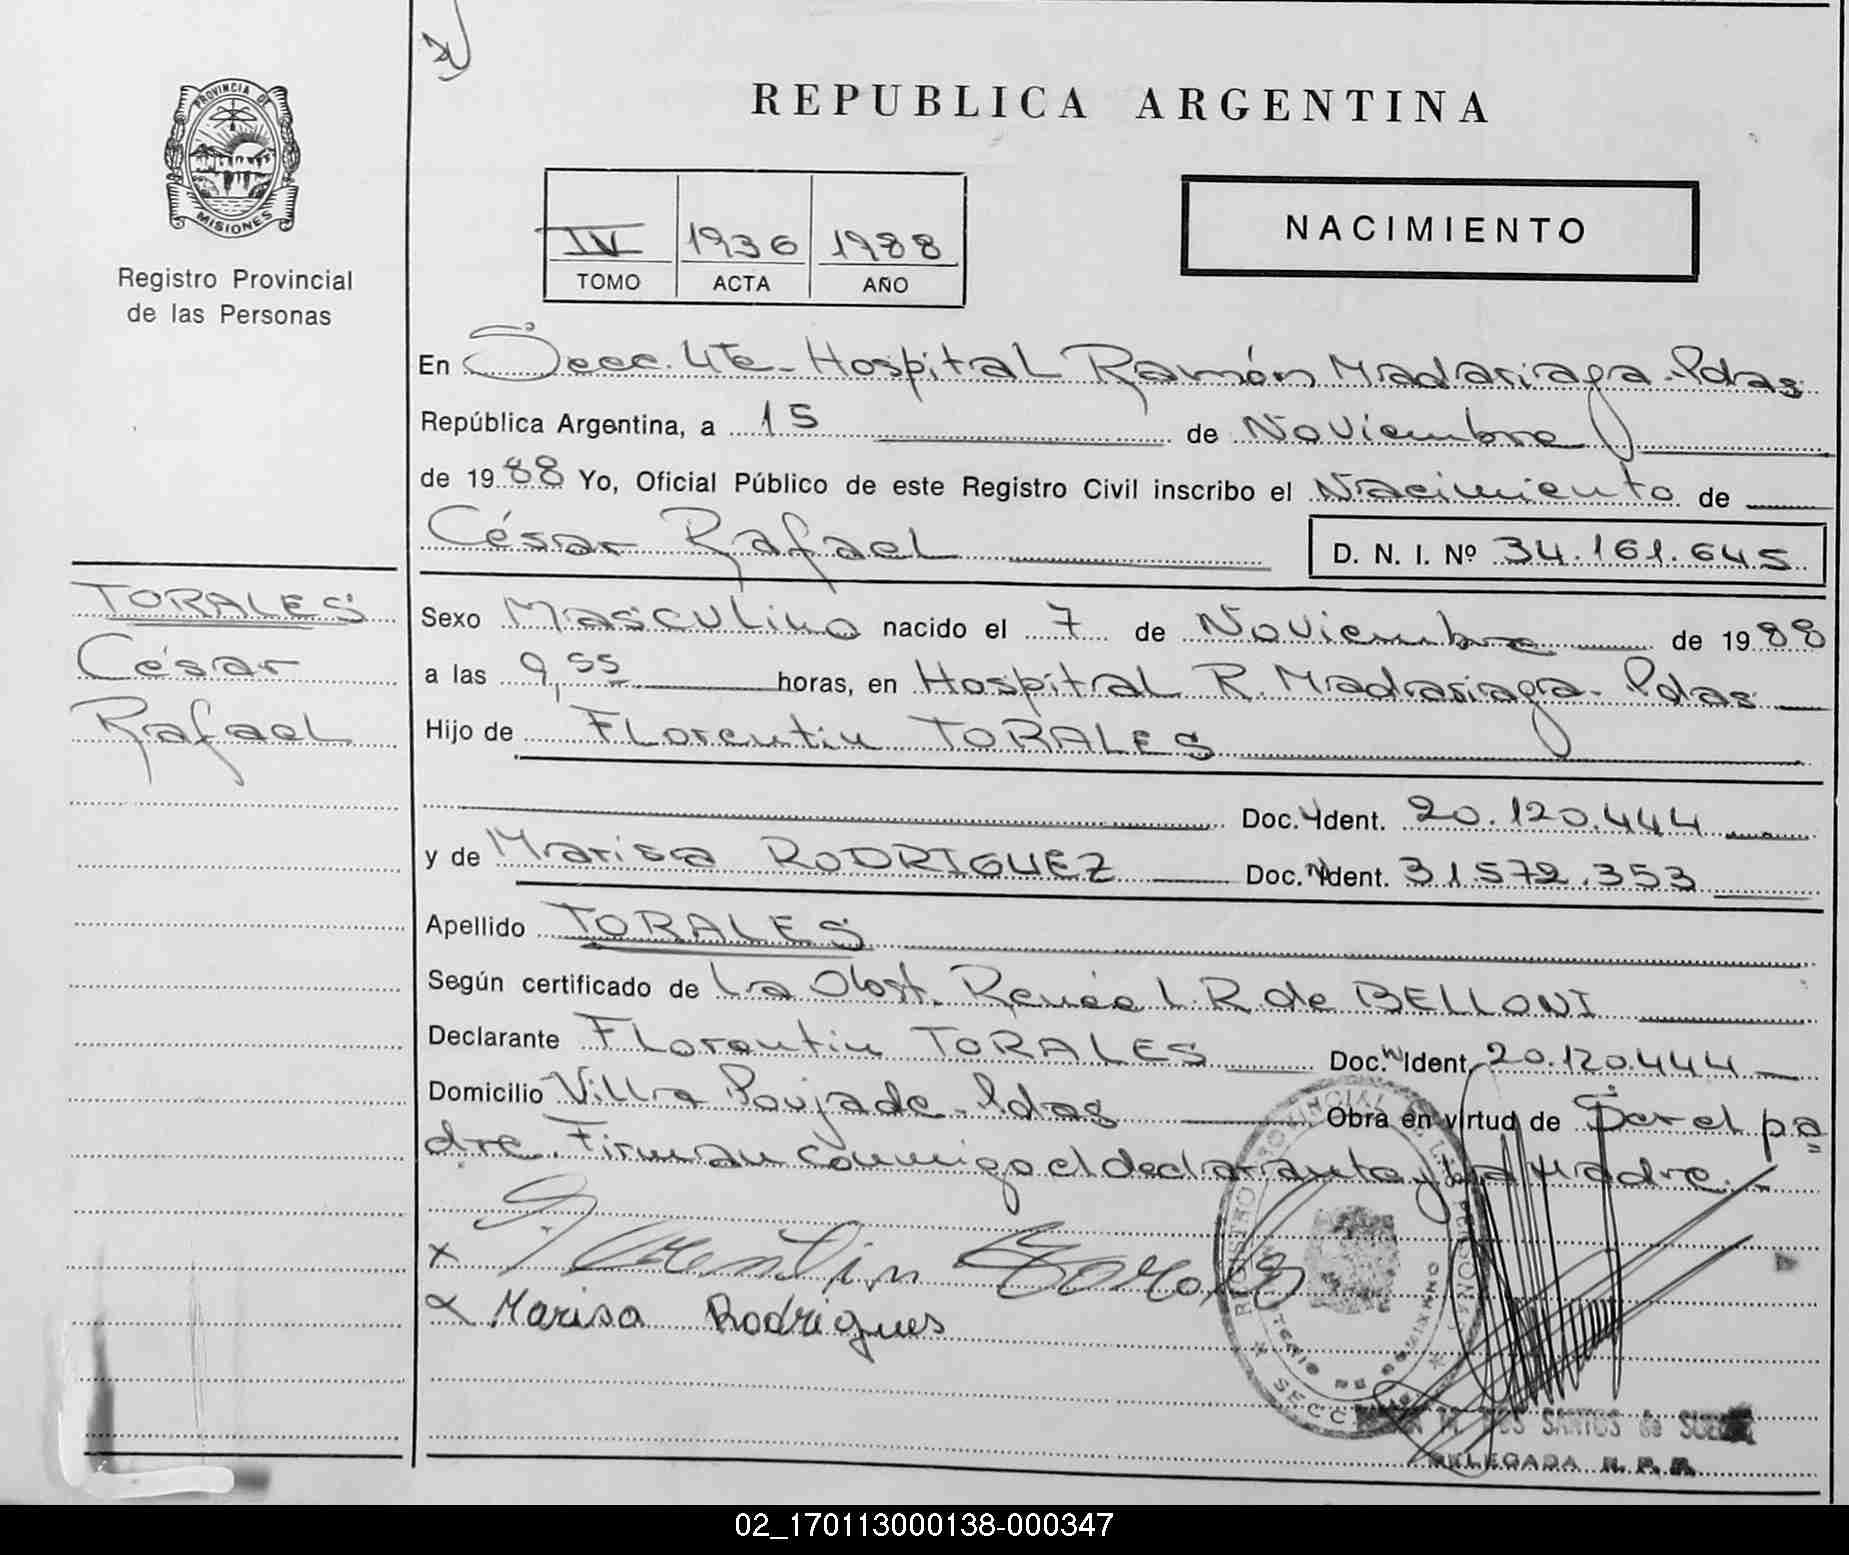 PROVINCIA DE
MISIONES
Registro Provincial
de las Personas
REPUBLICA ARGENTINA
IV 1936 1988
TOMO ACTA AÑO
NACIMIENTO
En Secc. 4te - Hospital Ramón Madariaga - Pdas
República Argentina, a 15 de Noviembre
de 1988 Yo, Oficial Público de este Registro Civil inscribo el Nacimiento de
César Rafael D. N. I. Nº 34.161.645
TORALES
César
Rafael
Sexo Masculino nacido el 7 de Noviembre de 1988
a las 9,55 horas, en Hospital R. Madariaga - Pdas
Hijo de Florentin TORALES
Doc. Ident. 20.120.444
y de Marisa RODRIGUEZ Doc. Ident. 31.572.353
Apellido TORALES
Según certificado de La Obst. Renée L. R. de BELLONI
Declarante Florentin TORALES Doc. Ident. 20.120.444
Domicilio Villa Poujade - Pdas Obra en virtud de Ser el pa
dre. Firman conmigo el declarante y la Madre. -
x Florentin Torales
x Marisa Rodrigues
DOS SANTOS de
DELEGADA R. P. P.
02_170113000138-000347